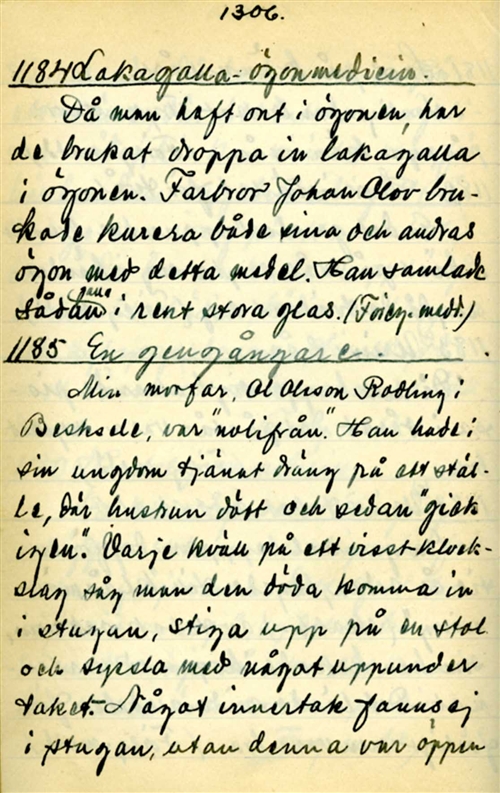 1306.
1184 Lakagalla - ögonmedicin.
Då man haft ont i ögonen, har
de brukat droppa in lakagalla
i ögonen. Farbror Johan Olov bru-
kade kurera både sina och andras
ögon med detta medel. Han samlade
sådan galla i rent stora glas. (Föreg. medd.)
1185 En gengångare.
Min morfar, Ol Olsson Rödling i
Besksele, var "nolifrån". Han hade i
sin ungdom tjänat dräng på ett stäl-
le, där hustrun dött och sedan "gick
igen". Varje kväll på ett visst klock-
slag såg man den döda komma in
i stugan, stiga upp på en stol
och syssla med något uppunder
taket. Något innertak fanns ej
i stugan, utan denna var öppen